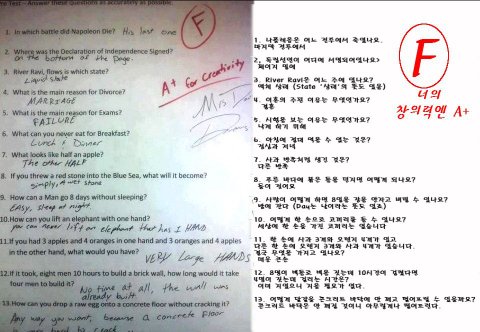 re Test – Answer these questions as accurately as possible.
F
1. In which battle did Napoleon Die? His last one
2. Where was the Declaration of Independence Signed?
on the bottom of the page.
3. River Ravi, flows is which state?
Liquid state
A+ for Creativity
4. What is the main reason for Divorce?
MARRIAGE
5. What is the main reason for Exams?
FAILURE
6. What can you never eat for Breakfast?
Lunch & Dinner
7. What looks like half an apple?
The other HALF
8. If you threw a red stone into the Blue Sea, what will it become?
simply, A wet stone
9. How can a Man go 8 days without sleeping?
EASY, sleep at night
10. How can you lift an elephant with one hand?
you can never lift an elephant that has 1 HAND
11. If you had 3 apples and 4 oranges in one hand and 3 oranges and 4 apples
in the other hand, what would you have?
VERY Large HANDS
12. If it took, eight men 10 hours to build a brick wall, how long would it take
four men to build it? No time at all, the wall was
already built
13. How can you drop a raw egg onto a concrete floor without cracking it?
Any way you want, because a concrete Floor
is very hard to crack
1. 나폴레옹은 어느 전투에서 죽었나요.
마지막 전투에서
2. 독립선언이 어디에 서명되어있나요>
페이지 밑에
3. River Ravi은 어느 주에 있나요?
액체 상태 (State '상태'의 뜻도 있음)
4. 이혼의 주된 이유는 무엇인가요?
결혼
5. 시험을 보는 이유는 무엇인가요?
낙제 하기 위해
6. 아침에 절대 먹을 수 없는 것은?
점심과 저녁
7. 사과 반쪽처럼 생긴 것은?
다른 반쪽
8. 푸른 바다에 붉은 돌을 던지면 어떻게 되나요?
돌이 젖어요
9. 사람이 어떻게 하면 8일을 잠을 안자고 버틸 수 있나요?
밤에 잔다 (Day는 낮이라는 뜻도 있죠)
10. 어떻게 한 손으로 코끼리를 들 수 있나요?
세상에 한 손을 가진 코끼리는 없습니다
11. 한 손에 사과 3개와 오렌지 4개가 있고
다른 한 손에 오렌지 3개와 사과 4개가 있습니다.
결국 무엇을 가지고 있나요?
매우 큰 손
12. 8명이 벽돌로 벽을 짓는데 10시간이 걸렸다면
4명이 짓는데 걸리는 시간은?
이미 지었으니 지을 필요가 없다.
13. 어떻게 달걀을 콘크리트 바닥에 안 깨고 떨어뜨릴 수 있을까요?
콘크리트 바닥은 안 깨질 것이니 아무렇게나 떨어뜨린다.
F
너의
창의력엔 A+